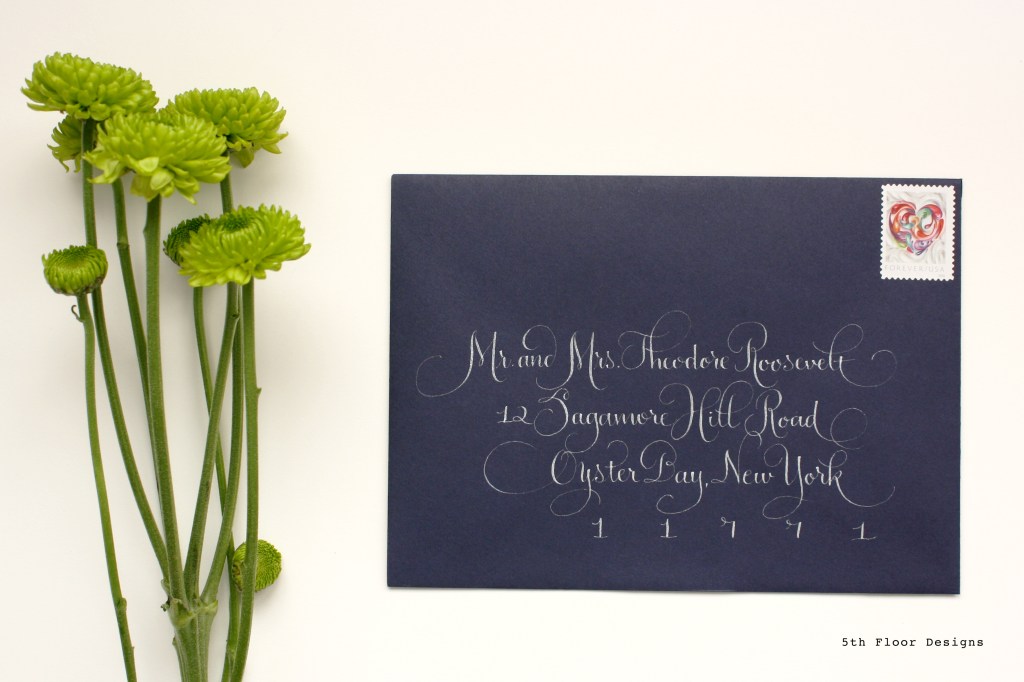 FOREVER USA
Mr. and Mrs. Theodore Roosevelt
12 Sagamore Hill Road
Oyster Bay, New York
1 1 7 7 1
5th Floor Designs